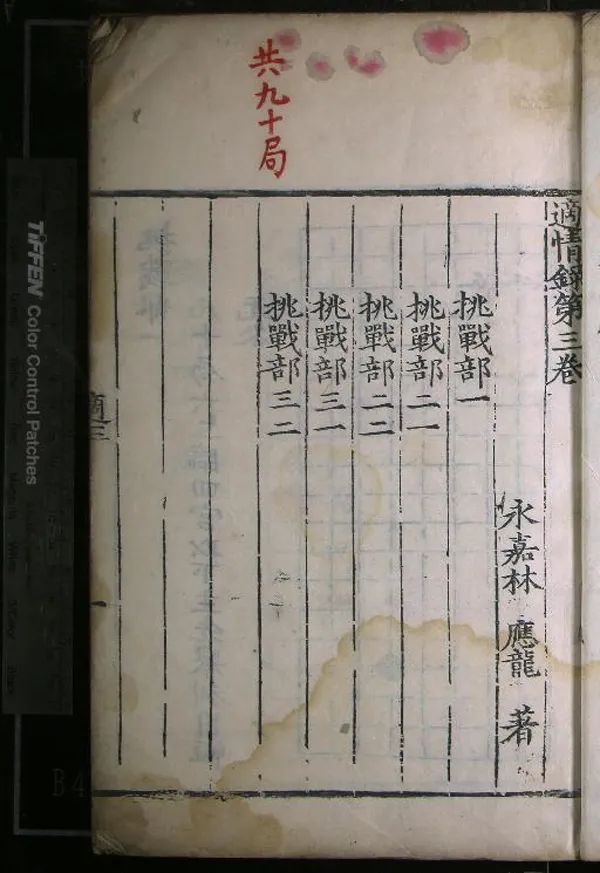 共九十局
適情錄第三卷
永嘉林 應龍 著
挑戰部一
挑戰部二一
挑戰部二二
挑戰部三一
挑戰部三二
適三
一
TIFFEN Color Control Patches
B4